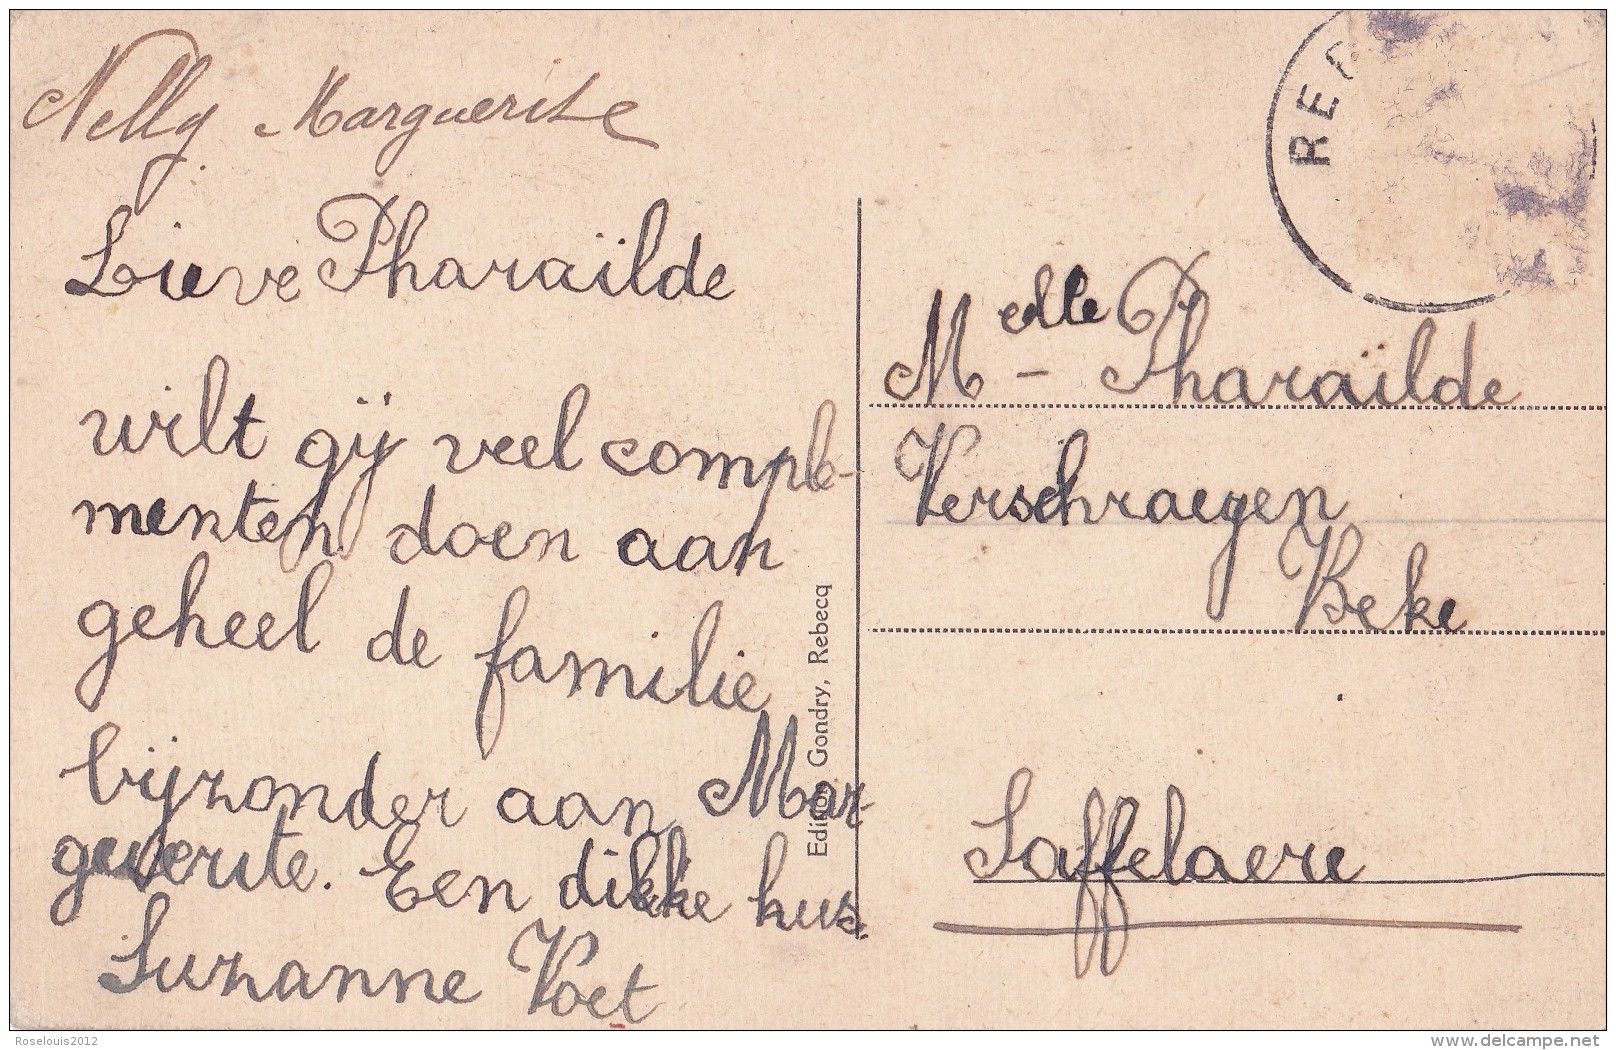 Nelly Marguerite
Lieve Pharaïlde
wilt gij veel comple-
menten doen aan
geheel de familie
bijzonder aan Mar-
geuerite. Een dikke kus.
Suzanne Voet
Edition Gondry, Rebecq
REB
Medlle - Pharaïlde
Verschraegen
Beke
Saffelaere
Roselouis2012
www.delcampe.net